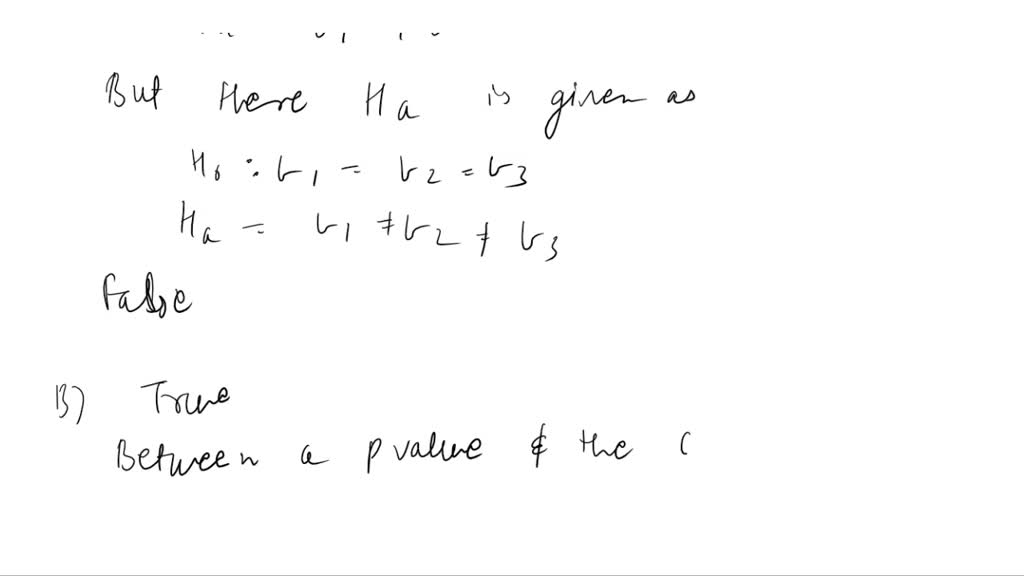 But Here Ha is given as
H0 : σ1 = σ2 = σ3
Ha = σ1 ≠ σ2 ≠ σ3
False
B) True
Between a p value & the (